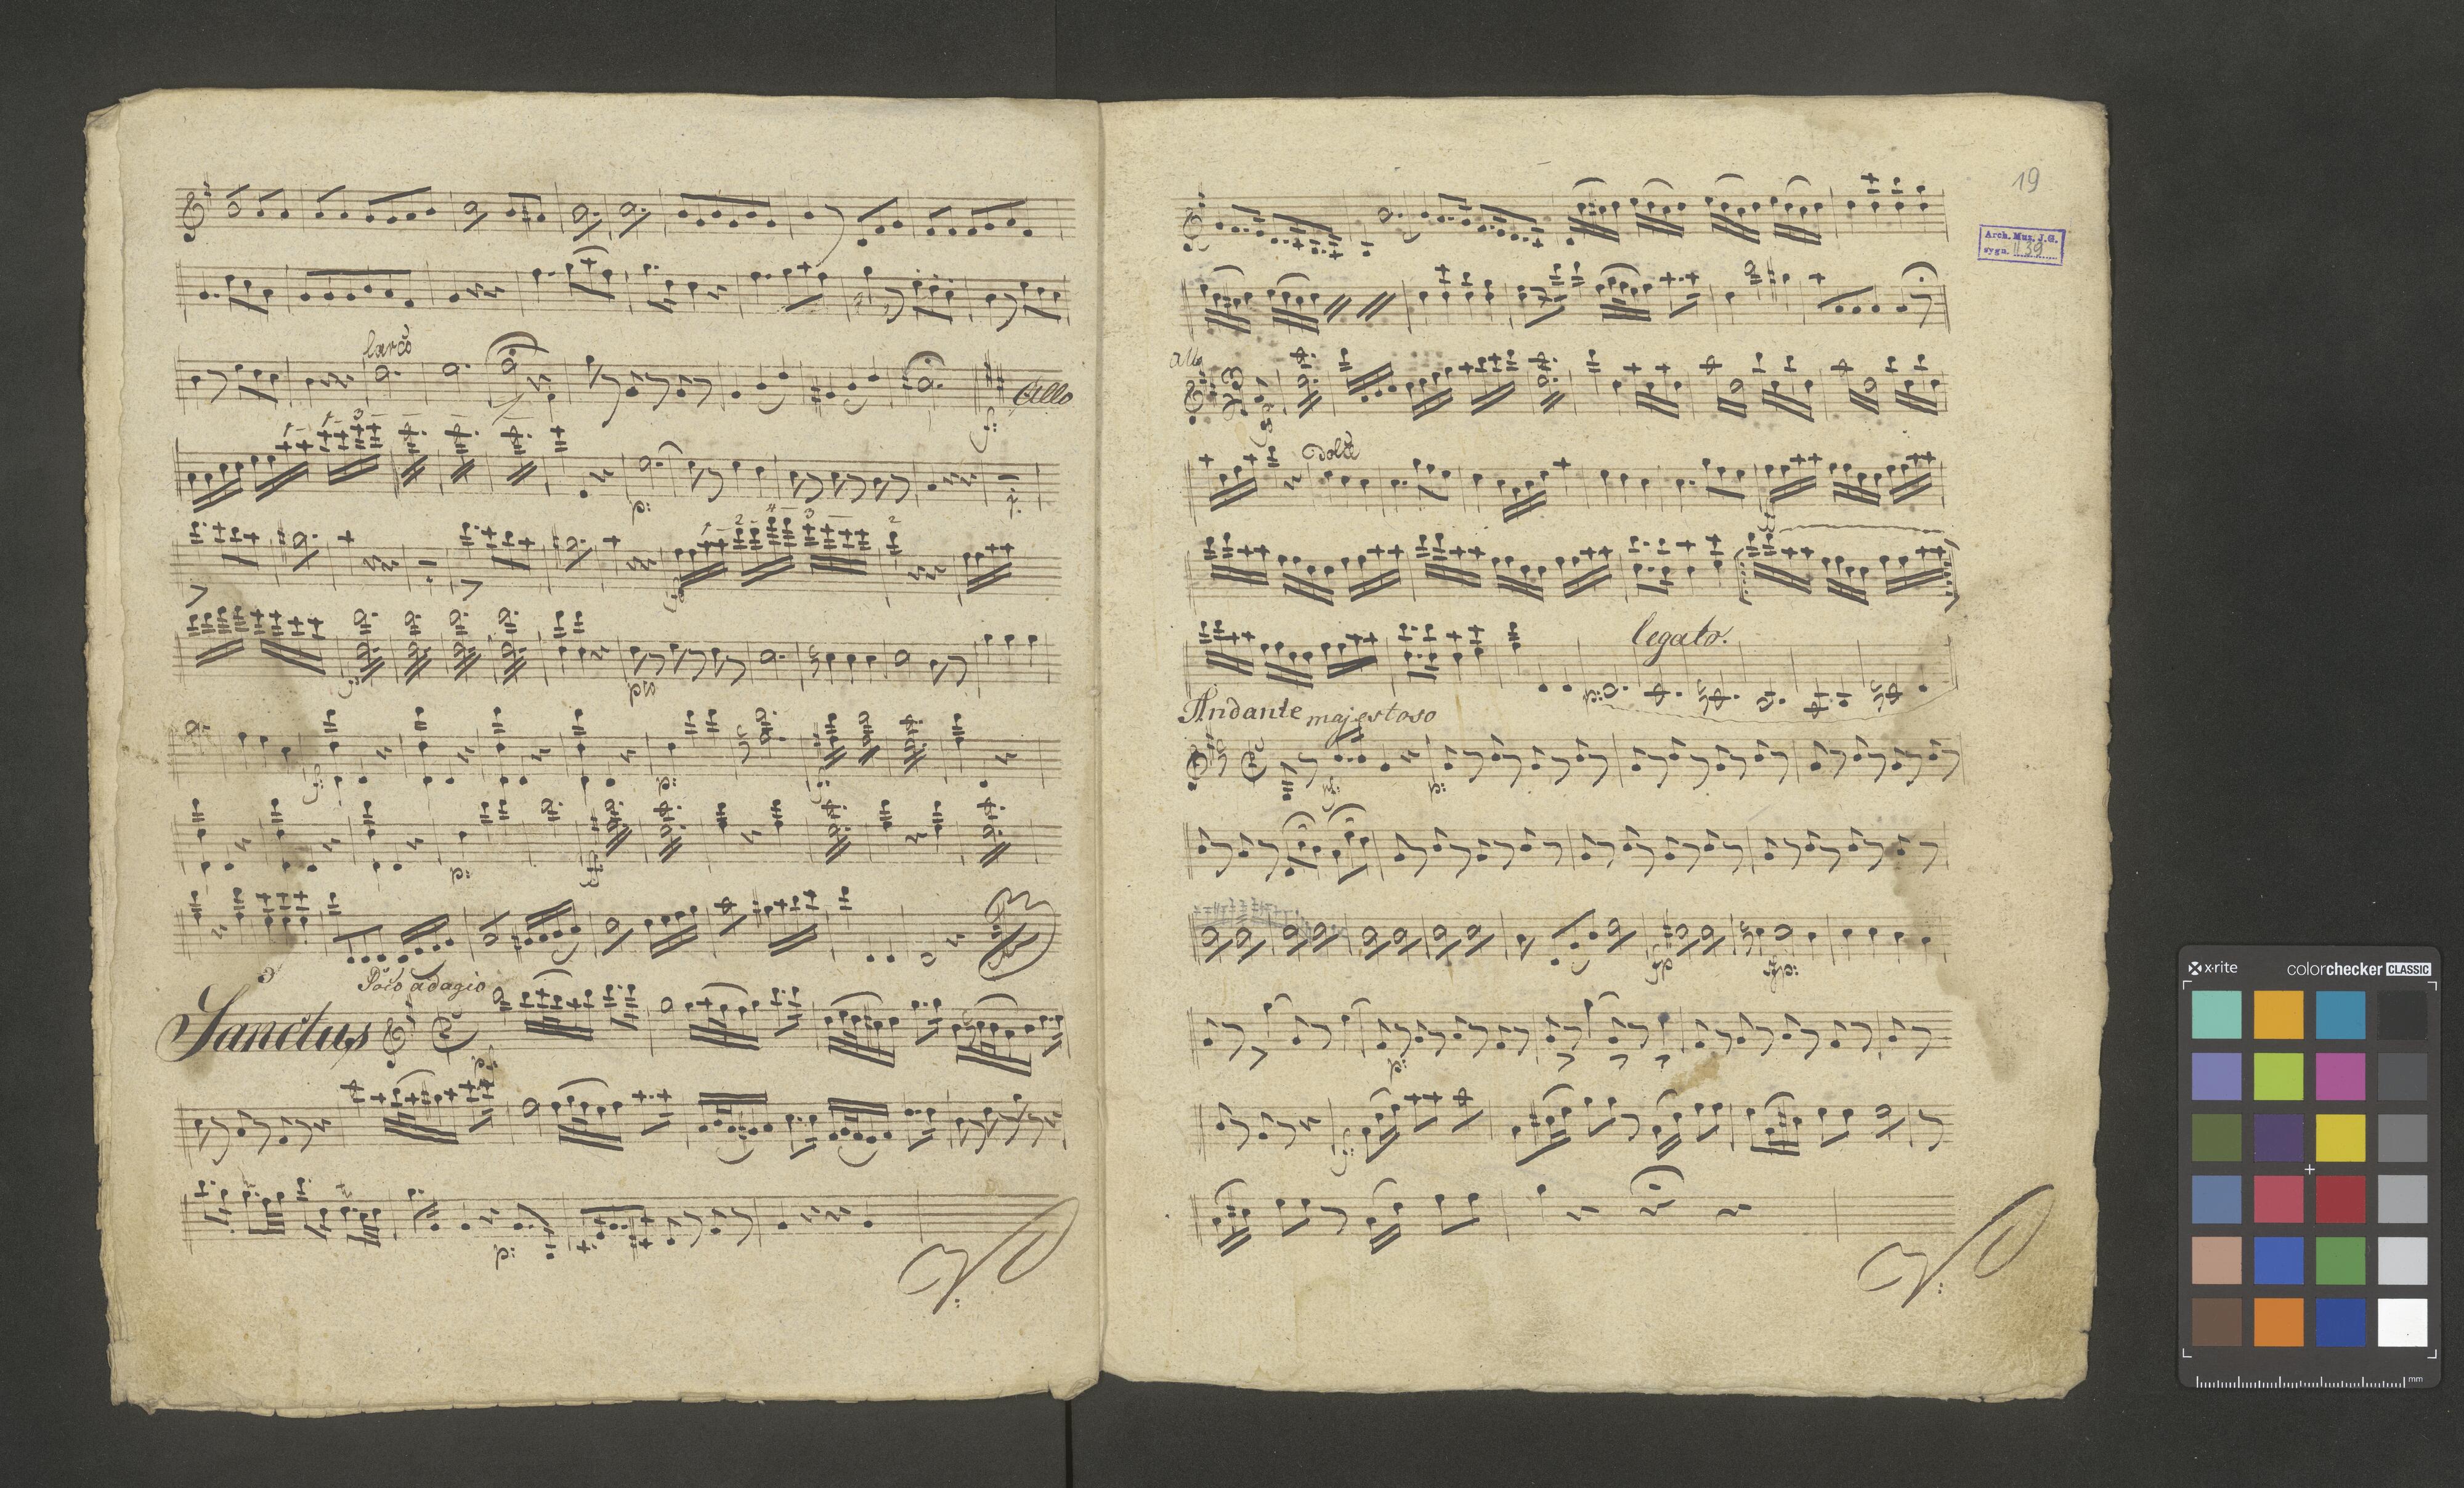 Allo
p:
1 1 3
1 2 4 3 2
f:
p:
f:
p:
3
Poco adagio
Sanctus
p:
19
Arch. Muz. J.G.
sygn. II 39
allo
Dolce
legato.
p:
Andante majestoso
p:
fp
fp:
p:
f:
x-rite
colorchecker CLASSIC
mm